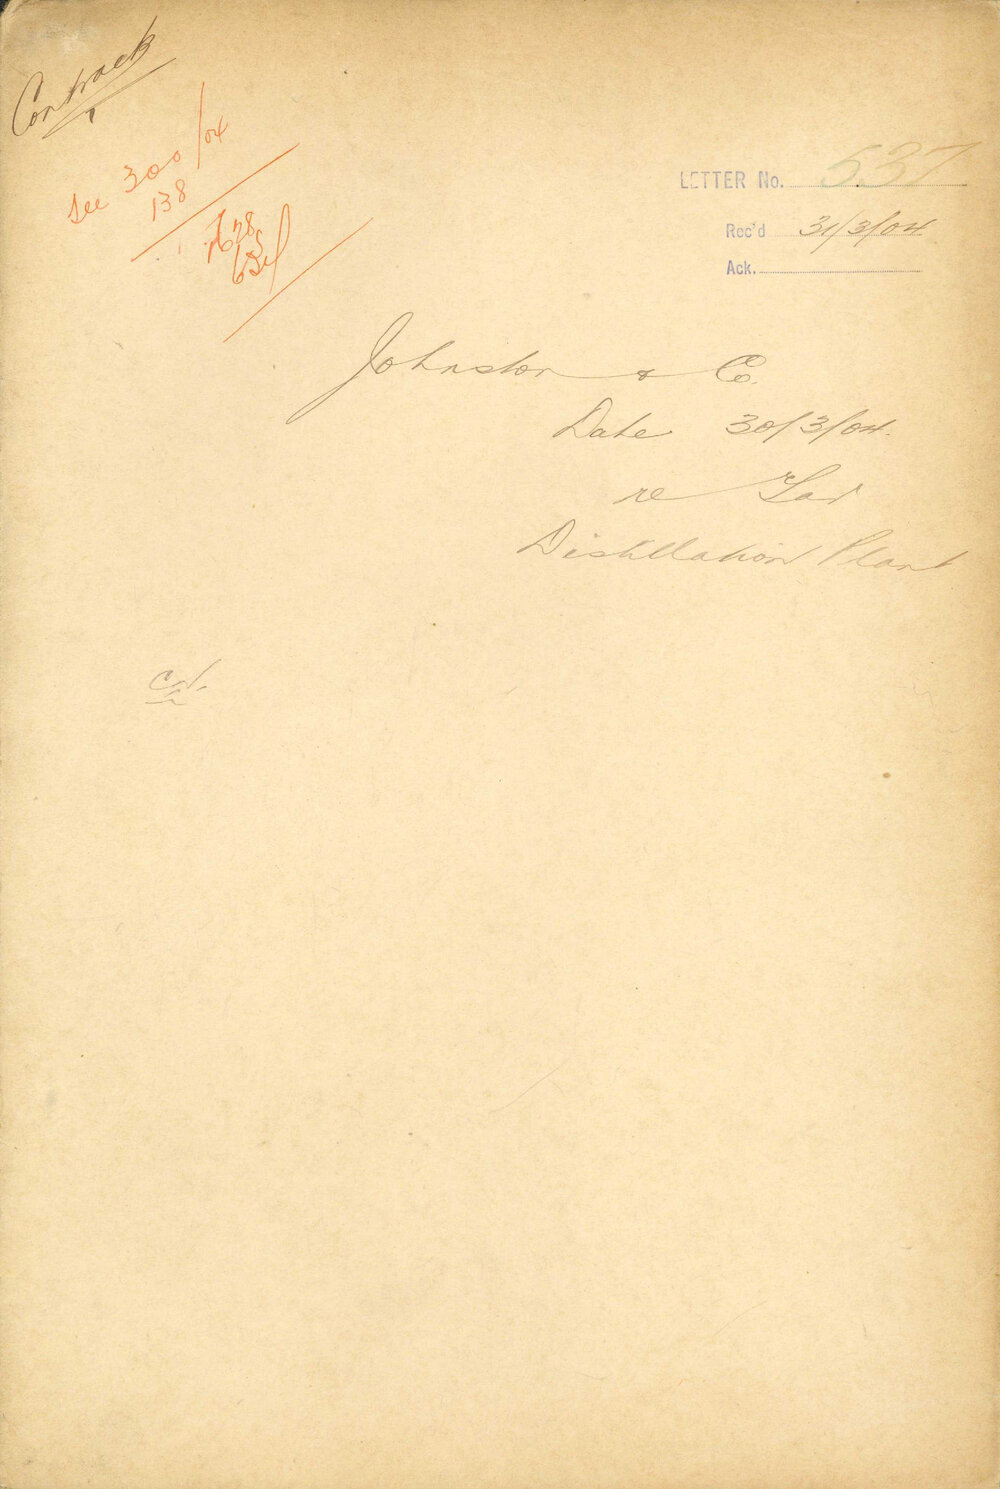 Contract
See 300/04
138
LETTER No. 537
Rec'd 31/3/04
Ack.
Johnston & Co.
Date 30/3/04.
re Tar
Distillation Plant